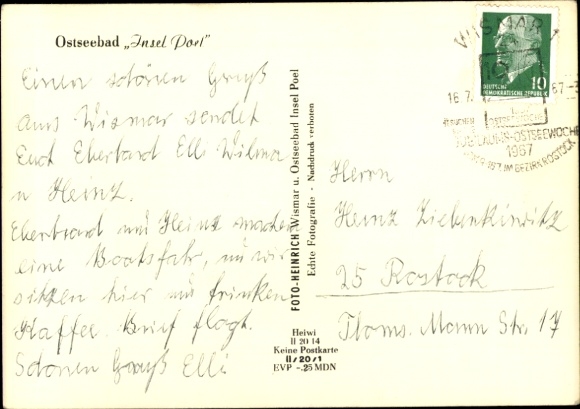 Ostseebad „Insel Poel"
Einen schönen Gruß
aus Wismar sendet
Euch Eberhard Elli Wilma
u Heinz.
Eberhard und Heinz machen
eine Bootsfahr, und wir
sitzen hier und trinken
Kaffee. Brief flogt.
Schönen Gruß Elli
FOTO-HEINRICH Wismar u. Ostseebad Insel Poel
Echte Fotografie · Nachdruck verboten
Heiwi
II 20 14
Keine Postkarte
II/20/1
EVP -.25 MDN
WISMAR 1
DEUTSCHE
DEMOKRATISCHE REPUBLIK
10
16.7.
67-
JUBILÄUMS-OSTSEEWOCHE
1967
IM BEZIRK ROSTOCK
Herrn
Heinz
25 Rostock
Thoms. Mann Str. 17